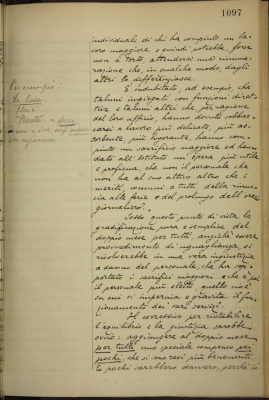 1097
individuali di chi ha compiuto un la-
voro maggiore e quindi potrebbe, forse
non a torto, attendersi una rimune-
razione che, in qualche modo, dagli
altri lo differenziasse.
È indubitato, ad esempio, che
taluni impiegati con funzioni diret-
tive e taluni altri che per ragione
del loro ufficio, hanno dovuto sobbar-
carsi a lavoro più delicato, più as-
sorbente, più snervante, hanno com-
piuto un sacrificio maggiore ed hanno
dato all'Istituto un'opera più utile
e proficua, che non il personale che
non ha al suo attivo altro che i
meriti comuni a tutti, della rinun-
cia alle ferie o del prolungo dell'orario
giornaliero.
Sotto questo punto di vista la
gratificazione pura e semplice del
doppio mese per tutti, anziché essere
provvedimento di uguaglianza, si
risolverebbe in una vera ingiustizia
a danno del personale, che ha sop-
portato i sacrifici maggiori e che è poi
il personale più eletto, quello cioè
su cui si impernia e gravita il fun-
zionamento dei vari servizi.
Il correttivo per ristabilire
l'equilibrio e la giustizia sarebbe
ovvio: aggiungere al doppio mese
per tutti, uno speciale compenso pei
pochi, che si sono resi più benemeriti.
E pochi sarebbero davvero, perché io